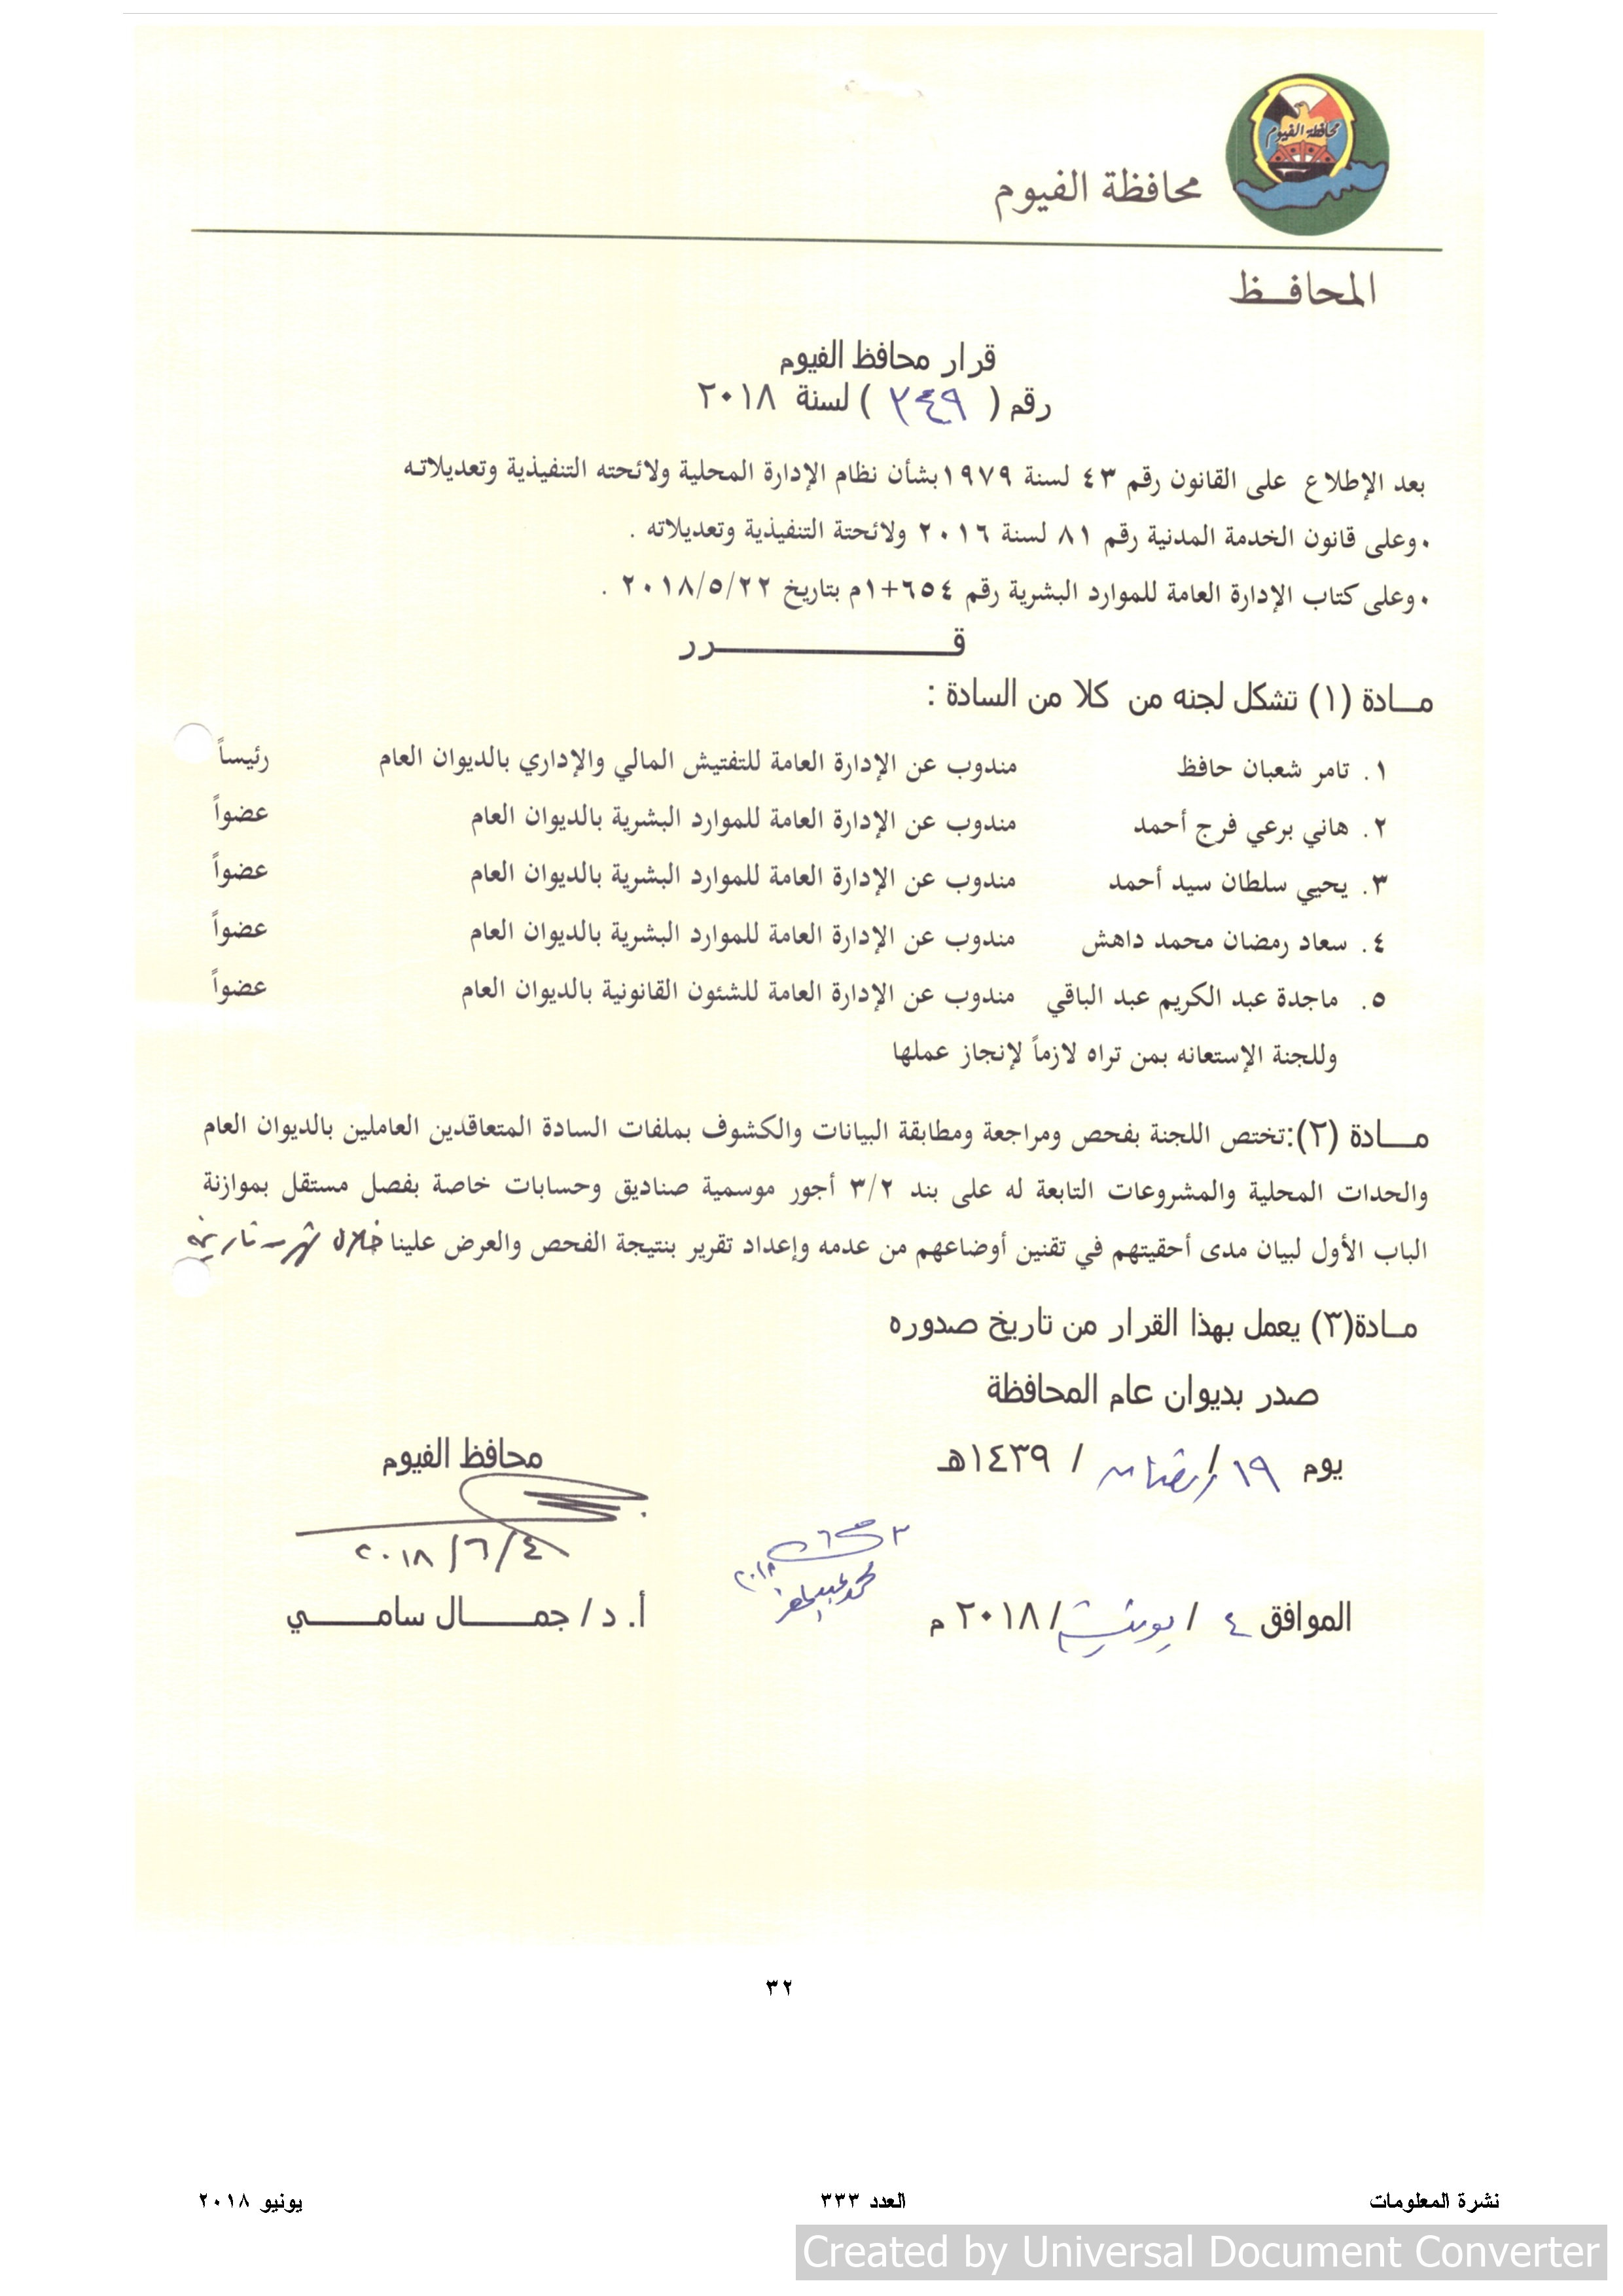 محافظة الفيوم
محافظة الفيوم
المحافـــظ
قرار محافظ الفيوم
رقم ( ٢٤٩ ) لسنة ٢٠١٨
بعد الإطلاع على القانون رقم ٤٣ لسنة ١٩٧٩ بشأن نظام الإدارة المحلية ولائحته التنفيذية وتعديلاته
• وعلى قانون الخدمة المدنية رقم ٨١ لسنة ٢٠١٦ ولائحتة التنفيذية وتعديلاته .
• وعلى كتاب الإدارة العامة للموارد البشرية رقم ٦٥٤+١م بتاريخ ٢٠١٨/٥/٢٢ .
قـــــــــــــرر
مــادة (١) تشكل لجنه من كلا من السادة :
١. تامر شعبان حافظ مندوب عن الإدارة العامة للتفتيش المالي والإداري بالديوان العام رئيساً
٢. هاني برعي فرج أحمد مندوب عن الإدارة العامة للموارد البشرية بالديوان العام عضواً
٣. يحيي سلطان سيد أحمد مندوب عن الإدارة العامة للموارد البشرية بالديوان العام عضواً
٤. سعاد رمضان محمد داهش مندوب عن الإدارة العامة للموارد البشرية بالديوان العام عضواً
٥. ماجدة عبد الكريم عبد الباقي مندوب عن الإدارة العامة للشئون القانونية بالديوان العام عضواً
وللجنة الإستعانه بمن تراه لازماً لإنجاز عملها
مــــادة (٢):تختص اللجنة بفحص ومراجعة ومطابقة البيانات والكشوف بملفات السادة المتعاقدين العاملين بالديوان العام
والحدات المحلية والمشروعات التابعة له على بند ٣/٢ أجور موسمية صناديق وحسابات خاصة بفصل مستقل بموازنة
الباب الأول لبيان مدى أحقيتهم في تقنين أوضاعهم من عدمه وإعداد تقرير بنتيجة الفحص والعرض علينا خلال شهر من تاريخه
مــادة(٣) يعمل بهذا القرار من تاريخ صدوره
صدر بديوان عام المحافظة
يوم ١٩ / رمضان / ١٤٣٩هـ
محافظ الفيوم
٢٠١٨/٦/٤
الموافق ٤ / يونيو / ٢٠١٨ م
أ. د/ جمـــــال سامـــــي
٣٢
نشرة المعلومات العدد ٣٣٣ يونيو ٢٠١٨
Created by Universal Document Converter